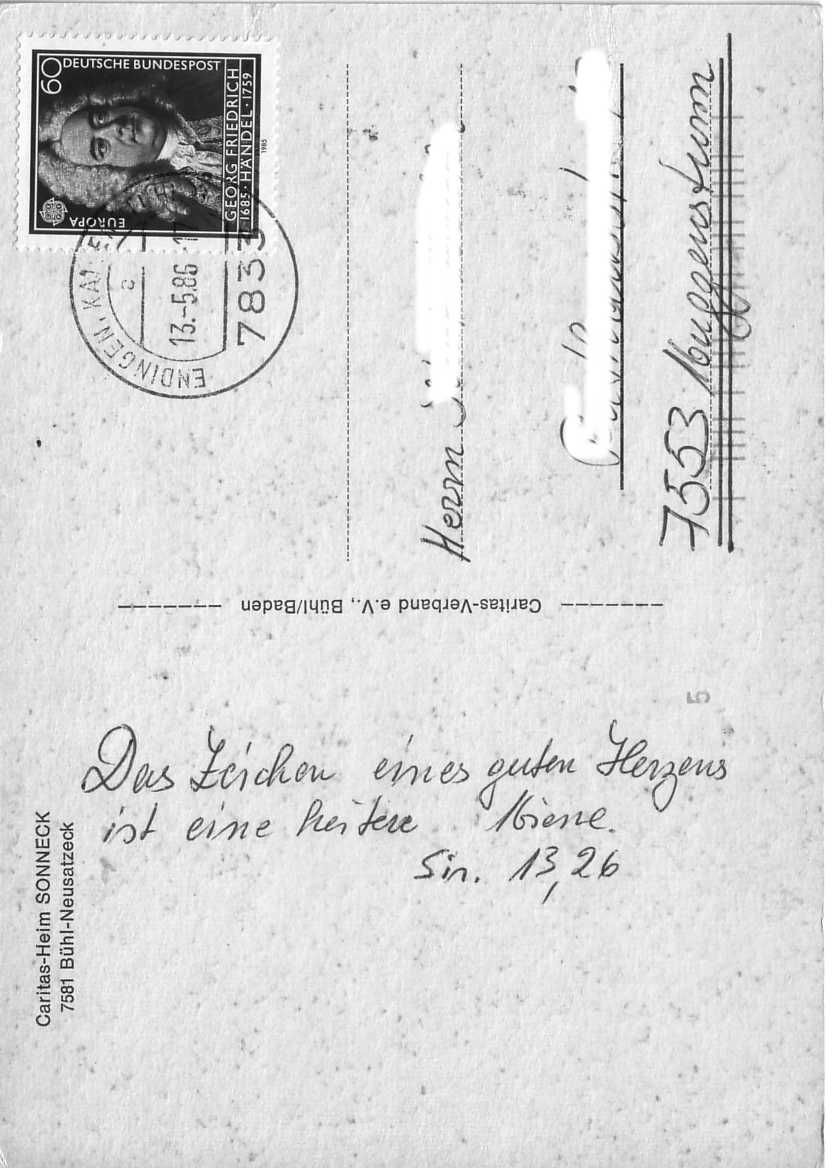 60
DEUTSCHE BUNDESPOST
GEORG FRIEDRICH
1685 · HÄNDEL · 1759
1985
EUROPA
ENDINGEN, KA
a
13.-5.86-17
7833
Herrn
7553 Muggensturm
Caritas-Verband e.V., Bühl/Baden
5
Das Zeichen eines guten Herzens
ist eine heitere Miene.
Sir. 13,26
Caritas-Heim SONNECK
7581 Bühl-Neusatzeck